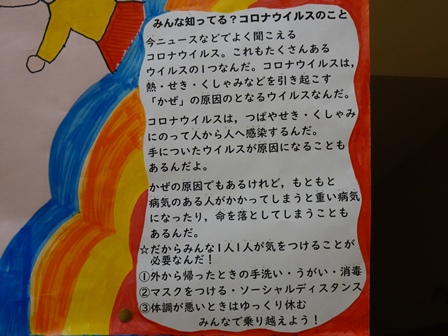 みんな知ってる？コロナウイルスのこと
今ニュースなどでよく聞こえる
コロナウイルス。これもたくさんある
ウイルスの1つなんだ。コロナウイルスは，
熱・せき・くしゃみなどを引き起こす
「かぜ」の原因のとなるウイルスなんだ。
コロナウイルスは，つばやせき・くしゃみ
にのって人から人へ感染するんだ。
手についたウイルスが原因になることも
あるんだよ。
かぜの原因でもあるけれど，もともと
病気のある人がかかってしまうと重い病気
になったり，命を落としてしまうことも
あるんだ。
☆だからみんな1人1人が気をつけることが
必要なんだ！
①外から帰ったときの手洗い・うがい・消毒
②マスクをつける・ソーシャルディスタンス
③体調が悪いときはゆっくり休む
みんなで乗り越えよう！